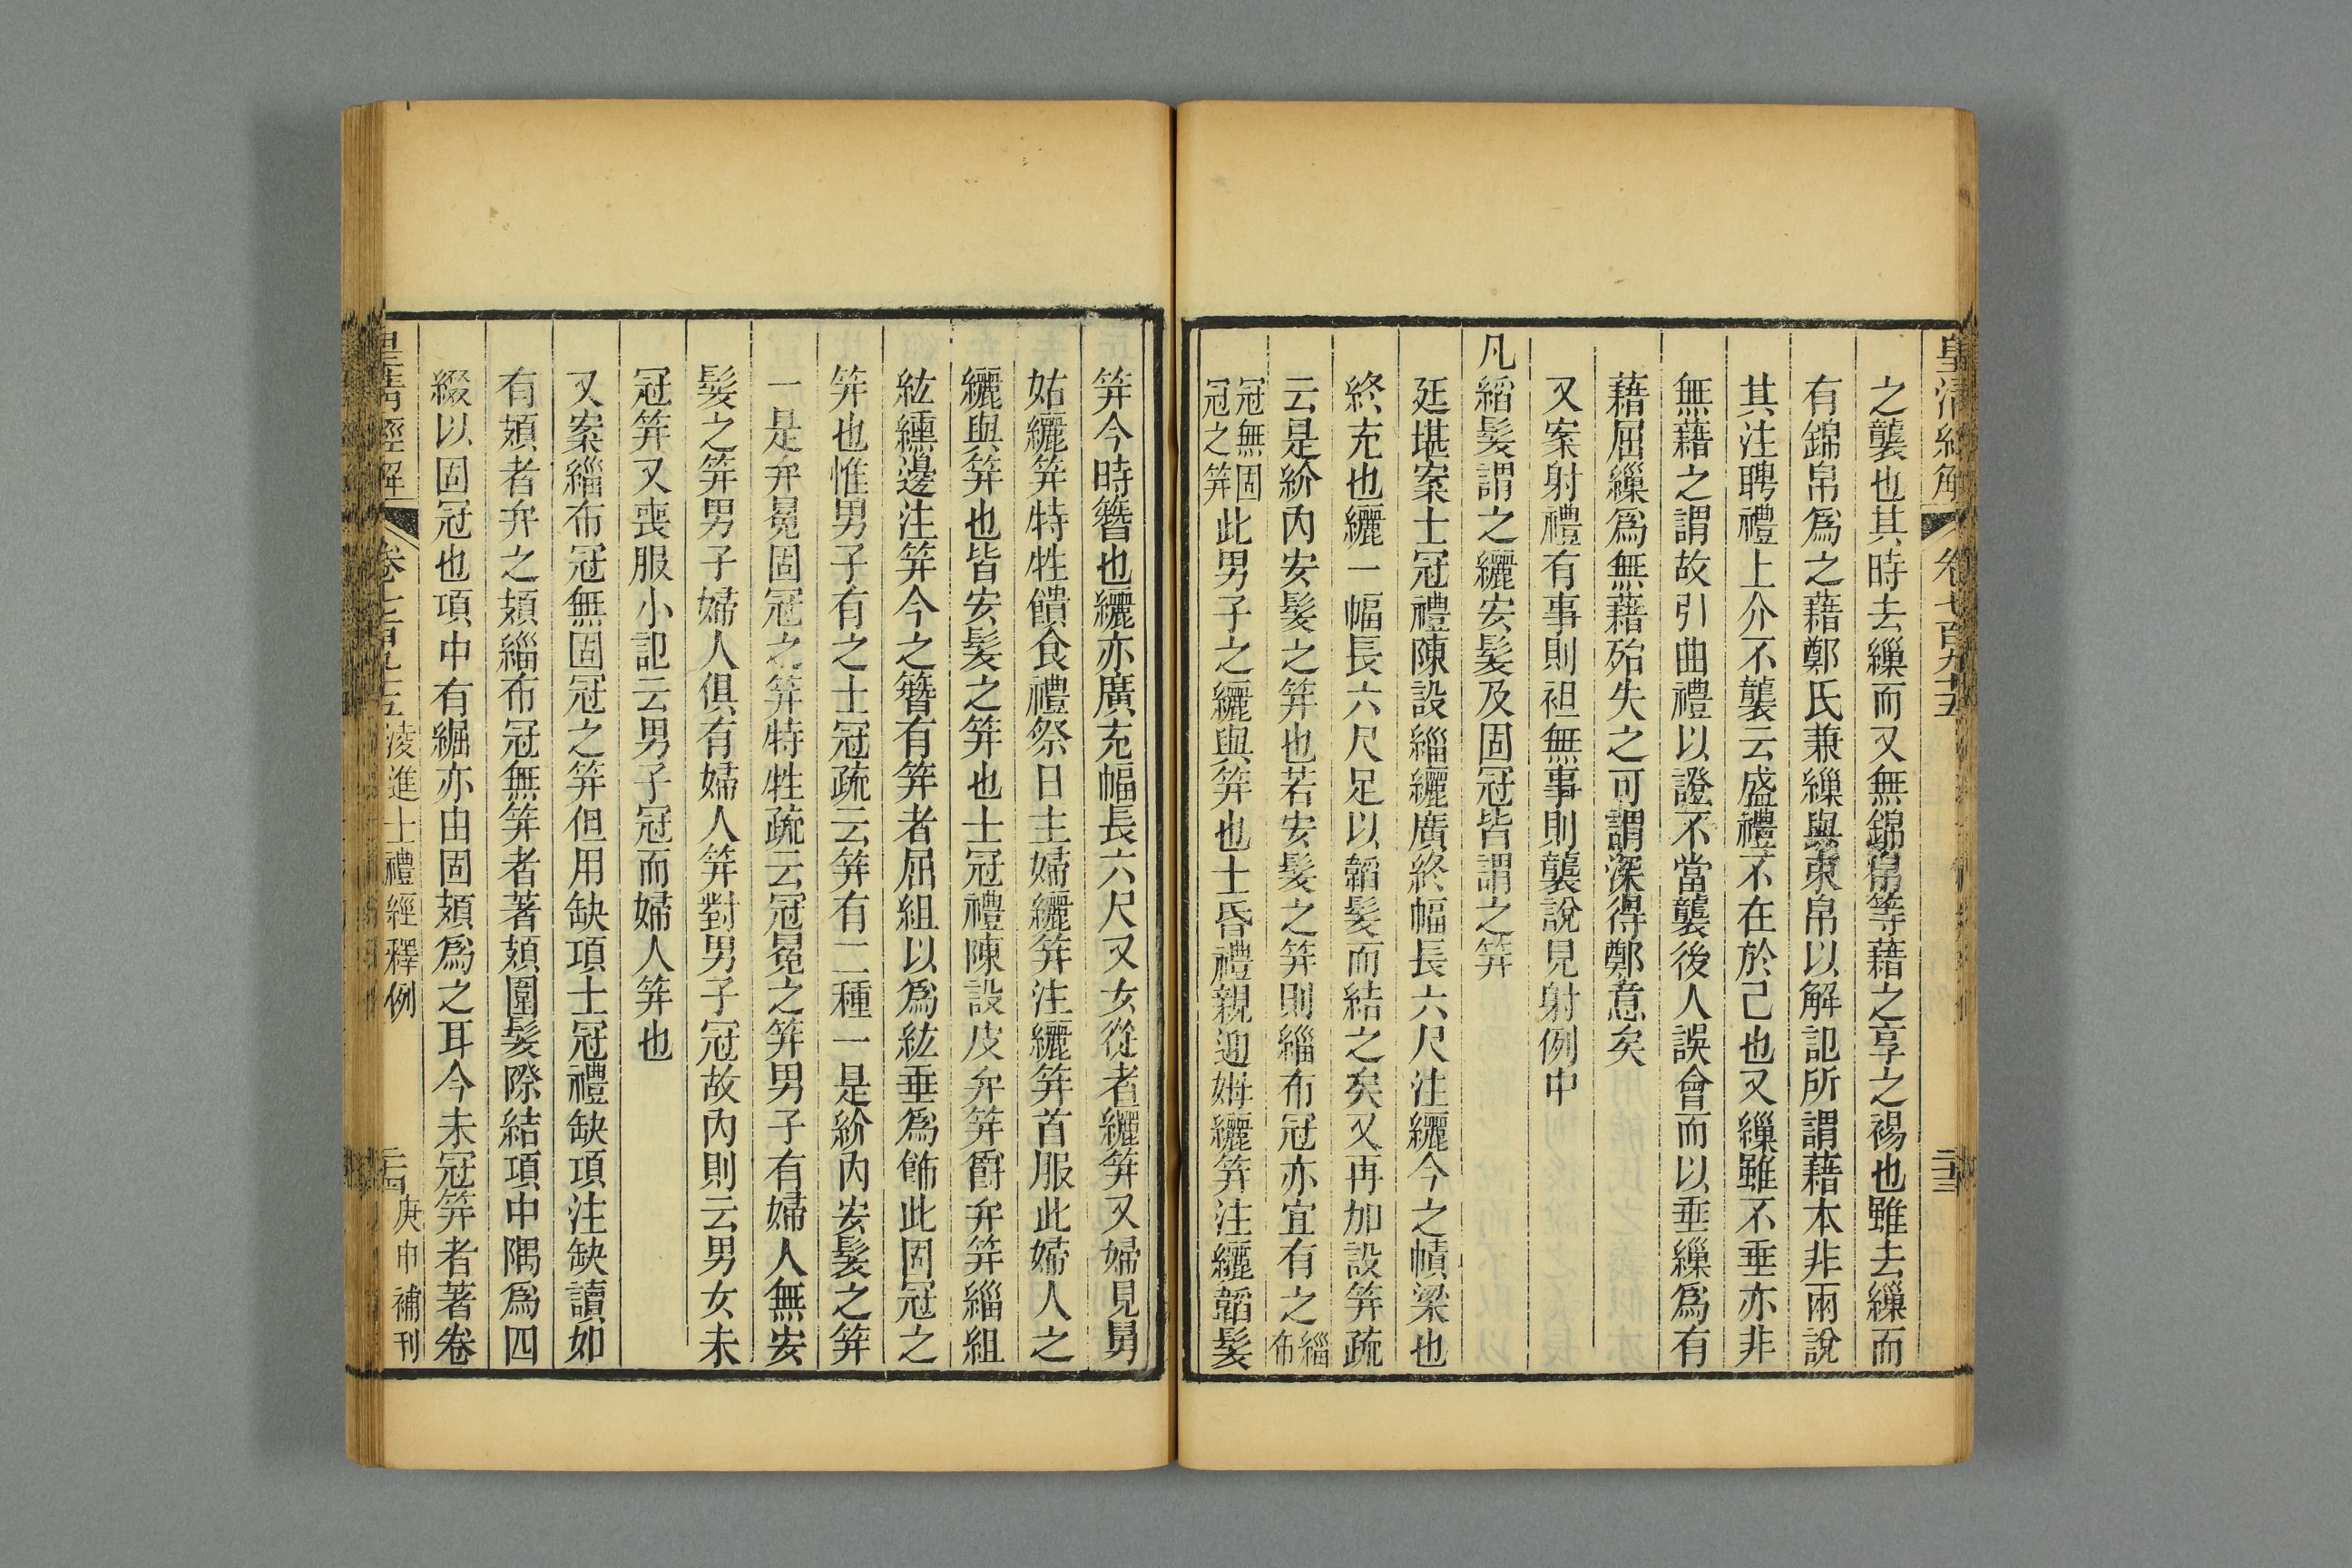 皇清經解 卷七百九十五 二十三
之襲也其時去繅而又無錦帛等藉之享之裼也雖去繅而
有錦帛爲之藉鄭氏兼繅與束帛以解記所謂藉本非兩說
其注聘禮上介不襲云盛禮不在於己也又繅雖不垂亦非
無藉之謂故引曲禮以證不當襲後人誤會而以垂繅爲有
藉屈繅爲無藉殆失之可謂深得鄭意矣
又案射禮有事則袒無事則襲說見射例中
凡縚髮謂之纚安髮及固冠皆謂之笄
廷堪案士冠禮陳設緇纚廣終幅長六尺注纚今之幘梁也
終充也纚一幅長六尺足以韜髮而結之矣又再加設笄疏
云是紒內安髮之笄也若安髮之笄則緇布冠亦宜有之緇布
冠無固冠之笄此男子之纚與笄也士昏禮親迎姆纚笄注纚韜髮
笄今時簪也纚亦廣充幅長六尺又女從者纚笄又婦見舅
姑纚笄特牲饋食禮祭日主婦纚笄注纚笄首服此婦人之
纚與笄也皆安髮之笄也士冠禮陳設皮弁笄爵弁笄緇組
紘纁邊注笄今之簪有笄者屈組以爲紘垂爲飾此固冠之
笄也惟男子有之士冠疏云笄有二種一是紒內安髮之笄
一是弁冕固冠之笄特牲疏云冠冕之笄男子有婦人無安
髮之笄男子婦人俱有婦人笄對男子冠故內則云男女未
冠笄又喪服小記云男子冠而婦人笄也
又案緇布冠無固冠之笄但用缺項士冠禮缺項注缺讀如
有頍者弁之頍緇布冠無笄者著頍圍髮際結項中隅爲四
綴以固冠也項中有𦀠亦由固頍爲之耳今未冠笄者著卷
皇清經解 卷七百九十五 淩進士禮經釋例 二十四 庚申補刊